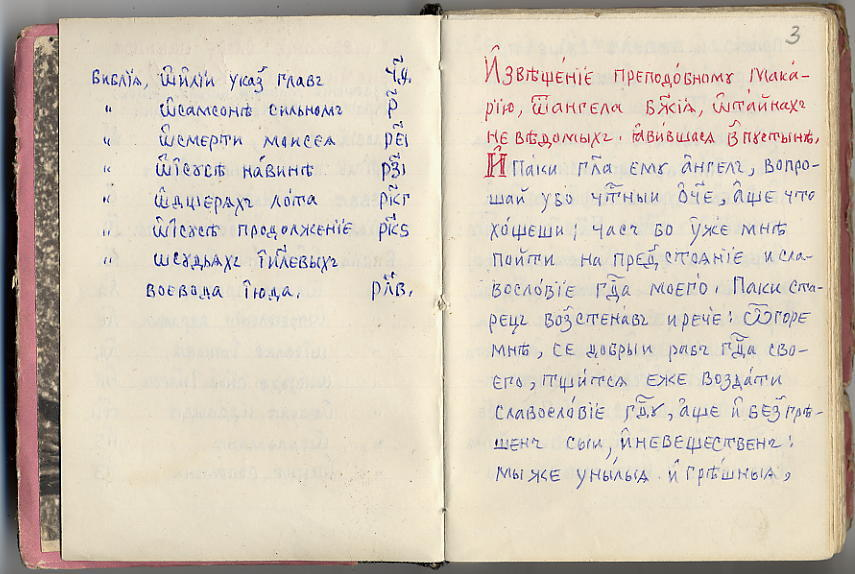 Библїѧ, ѿи҆лїи указ̾ главъ ч҃ѳ.
„ ѡ҆самсонѣ сильномъ р҃
„ ѡ҆смерти моисея р҃еі
„ ѡ҆їсусѣ на́винѣ р҃зі
„ ѡ҆дщерѧхъ ло́та р҃кг
„ ѡ҆їсусѣ продолженїе р҃кѕ
„ ѡсудьѧхъ їи҃левыхъ
воевода їюда. р҃лв.
3
И҆звѣще́нїе преподо́бному Мака́-
рїю, ѿа́нгела бж҃їѧ, ѡ҆та́йнахъ
невѣдомыхъ. ꙗ҆ви́вшасѧ в̾пустынѣ.
И҆ Па́ки гл҃а ему а҆́нгелъ, вопро-
шай убо чт҃ныи о҆́ч҃е, а҆ще что
хо́щеши; часъ бо у҆же мнѣ
поити на предстоѧнїе исла-
восло́вїе гд҃а моего́. Паки ста-
рецъ воз̾стена́въ ирече: Ѿгоре
мнѣ, се добрыи рабъ гд҃а сво-
его, тщи́тсѧ еже возда́ти
славосло́вїе гд҃у, а҆ще и҆ без̾грѣ-
шенъ сыи, и҆невещественъ:
мы же уны́лыѧ и҆ грѣшныѧ,